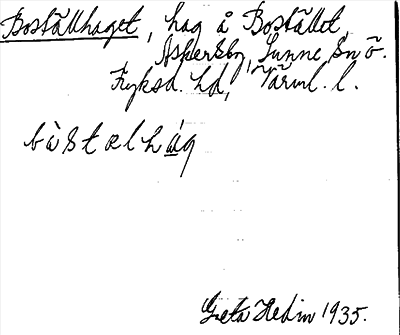 Boställhaget, hag å Bostället,
Aspersby, Sunne sn ö.
Fryksd. hd, Värml. l.
bὼstælhág
Greta Hedin 1935.